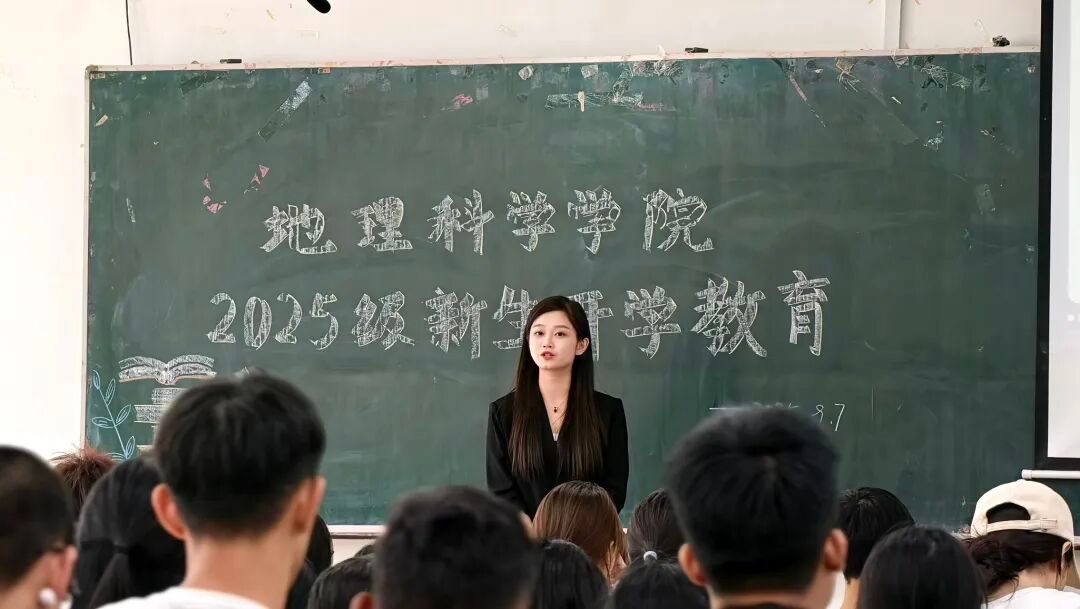 地理科学学院
2025级新生开学教育
9.7